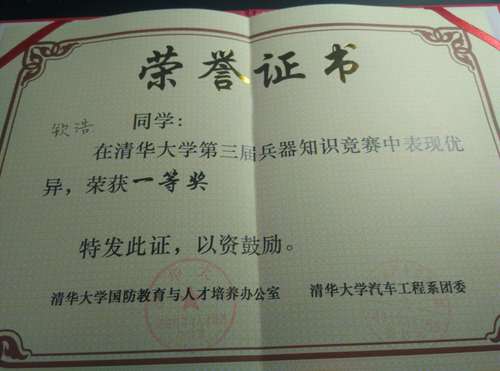 荣誉证书
钦浩 同学:
在清华大学第三届兵器知识竞赛中表现优
异，荣获一等奖
特发此证，以资鼓励。
清华大学国防教育与人才培养办公室 清华大学汽车工程系团委